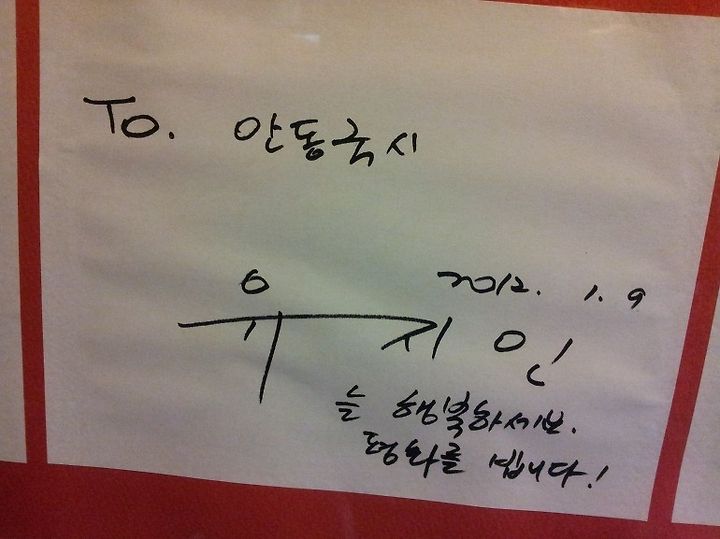 To. 안동국시
2012. 1. 9
유지인
늘 행복하세요.
평화를 빕니다!